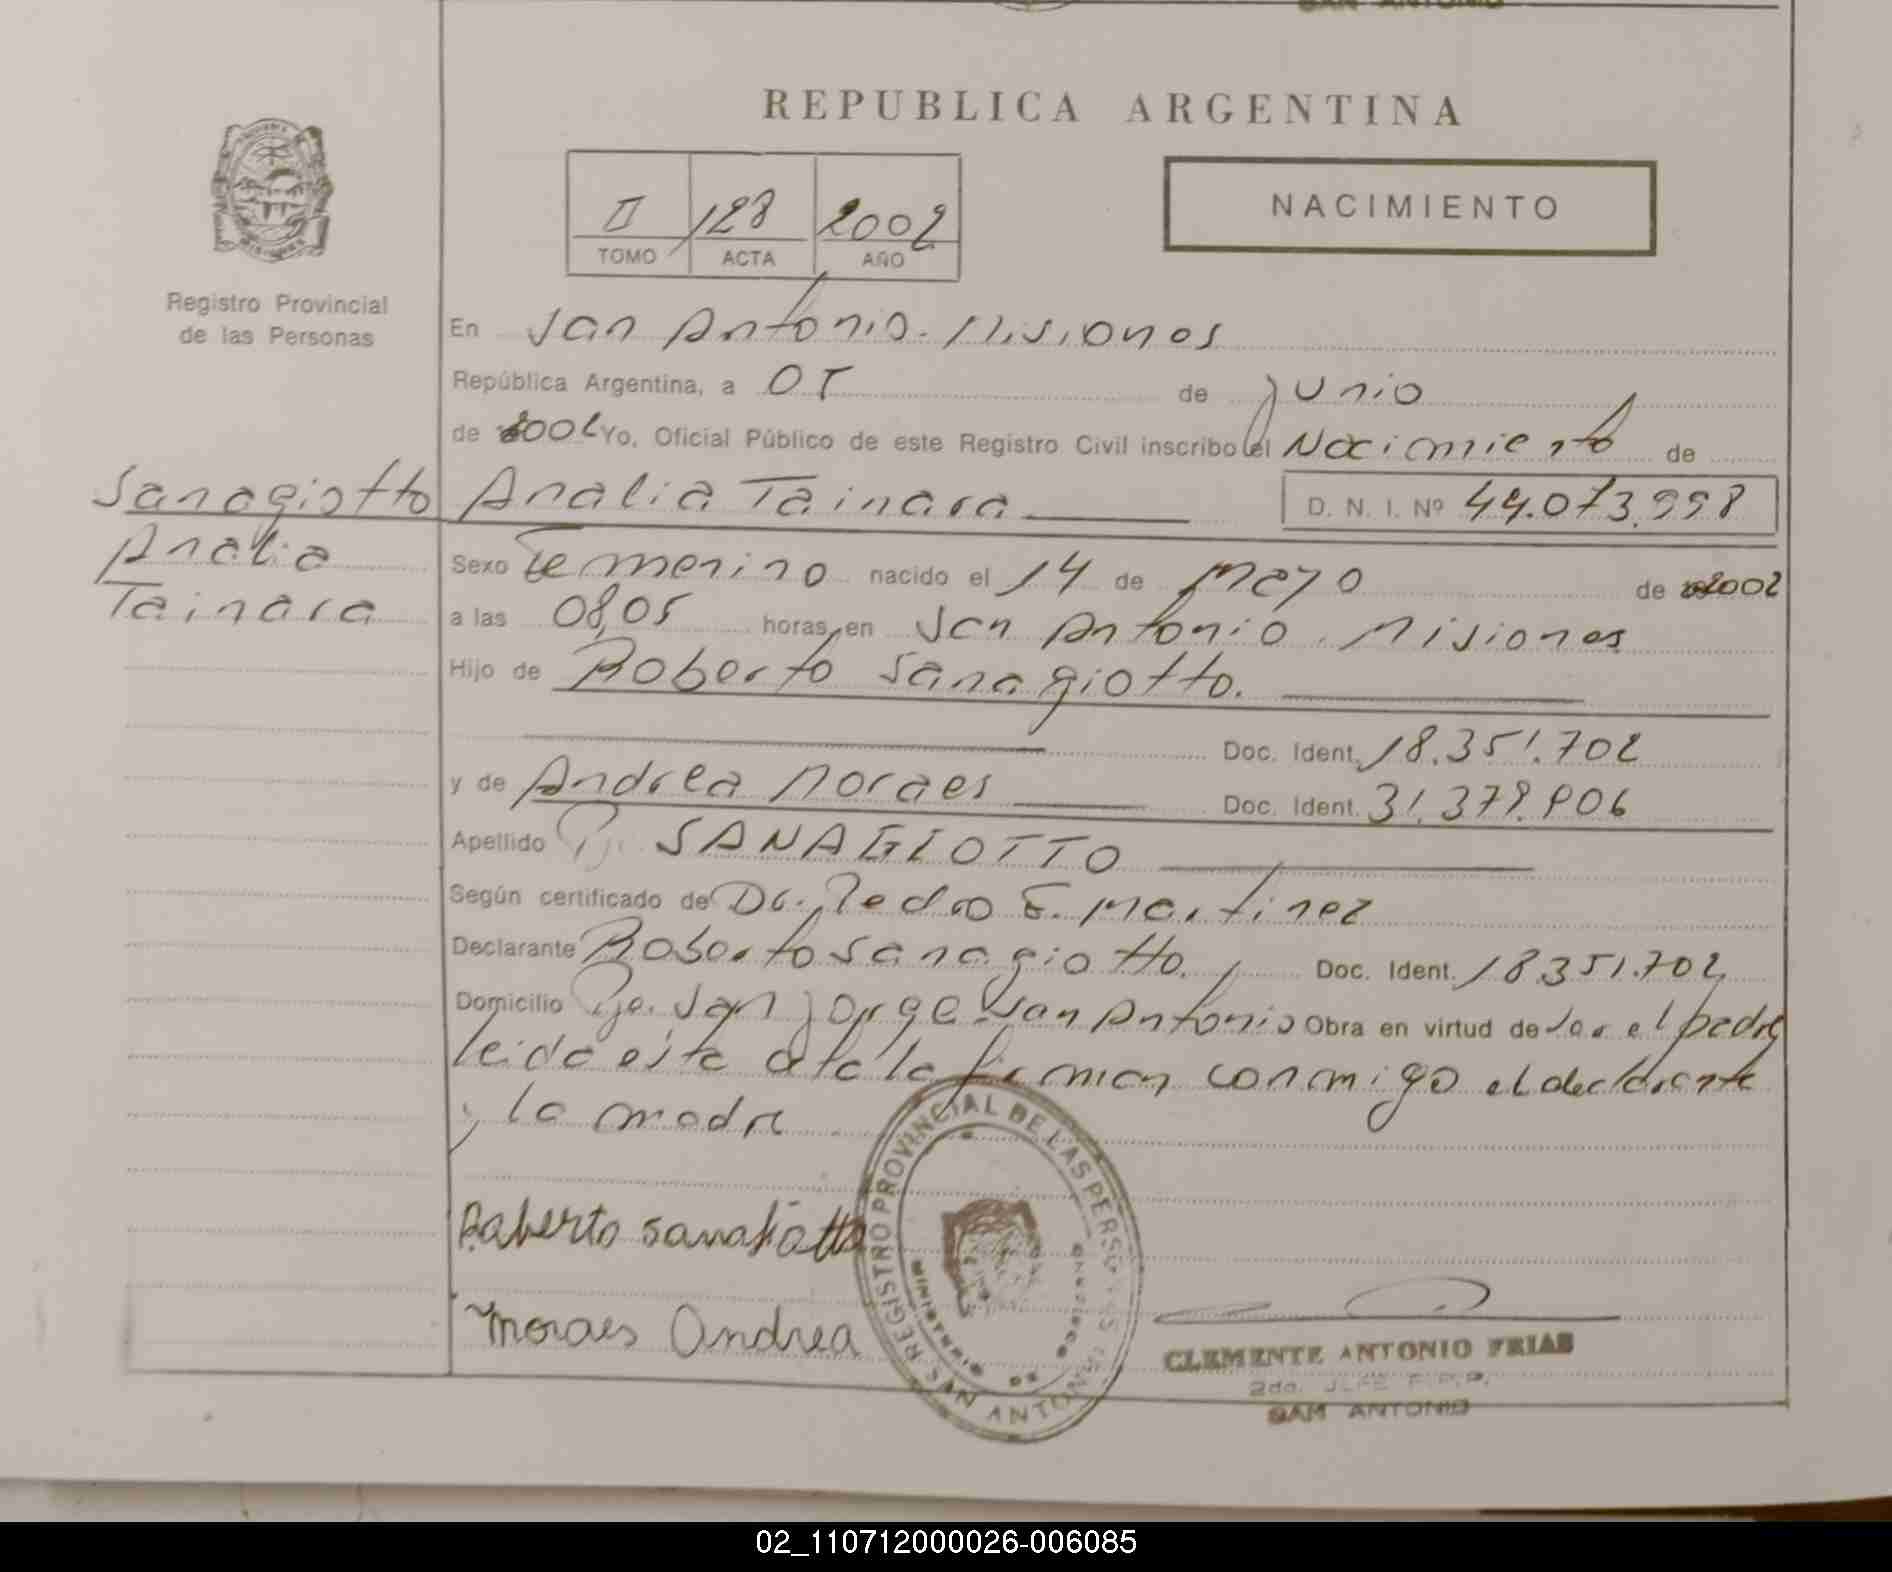 SAN ANTONIO
REPUBLICA ARGENTINA
NACIMIENTO
II 128 2002
TOMO ACTA AÑO
Registro Provincial
de las Personas
En San Antonio. Misiones
República Argentina, a 05 de Junio
de 2002 Yo, Oficial Público de este Registro Civil inscribo el Nacimiento de
Sanagiotto Analia Tainara D. N. I. Nº 44.073.998
Analia
Tainara
Sexo Femenino nacido el 14 de Mayo de 2002
a las 08,05 horas, en San Antonio. Misiones
Hijo de Roberto Sanagiotto.
Doc. Ident. 18.351.702
y de Andrea Moraes Doc. Ident. 31.379.906
Apellido SANAGIOTTO
Según certificado de Dr. Pedro E. Martinez
Declarante Roberto Sanagiotto. Doc. Ident. 18351.702
Domicilio Pje. San Jorge San Antonio Obra en virtud de ser el padre
leida esta acta la firman conmigo el declarante
y la madre
Roberto Sanagiotto
Moraes Andrea
REGISTRO PROVINCIAL DE LAS PERSONAS
MINISTERIO DE GOBIERNO
SAN ANTONIO
CLEMENTE ANTONIO FRIAS
2do. JEFE R.P.P.
SAN ANTONIO
02_110712000026-006085